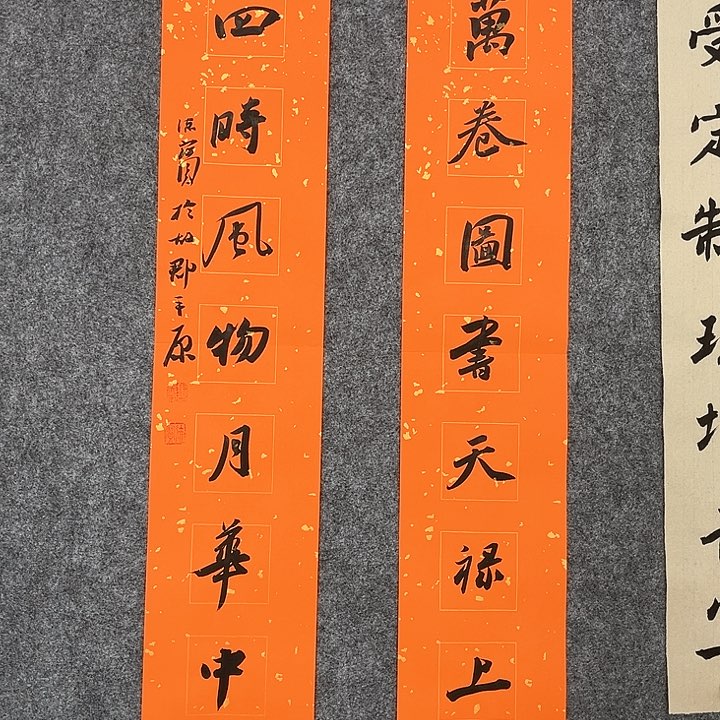 萬卷圖書天禄上
四時風物月華中
於故郡平原
受定制